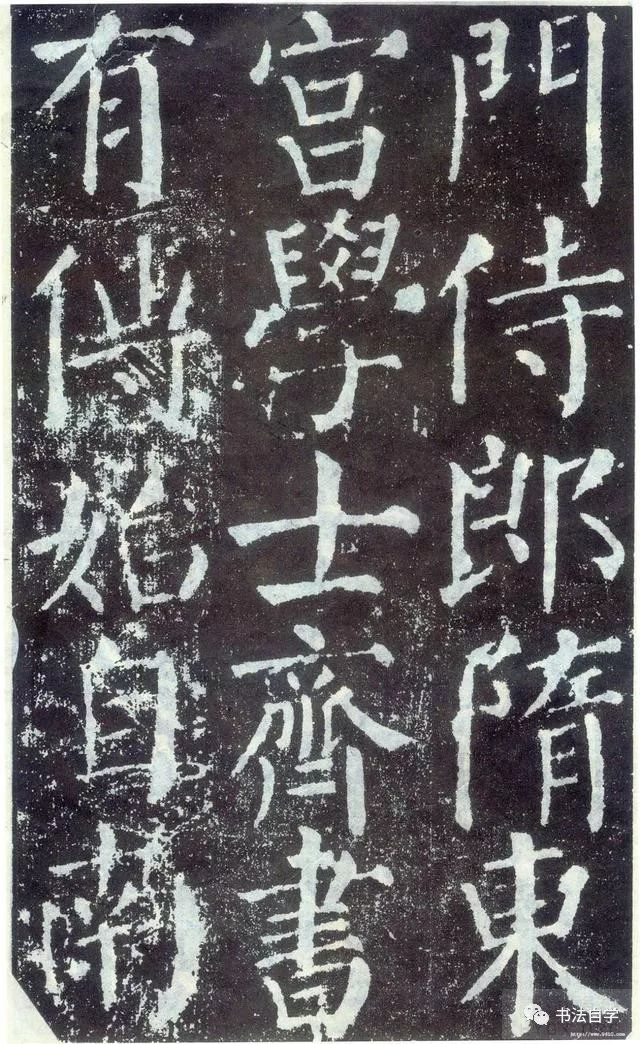 門侍郎隋東
宮學士齊書
有傳始自南
书法自学
http://www.9610.com